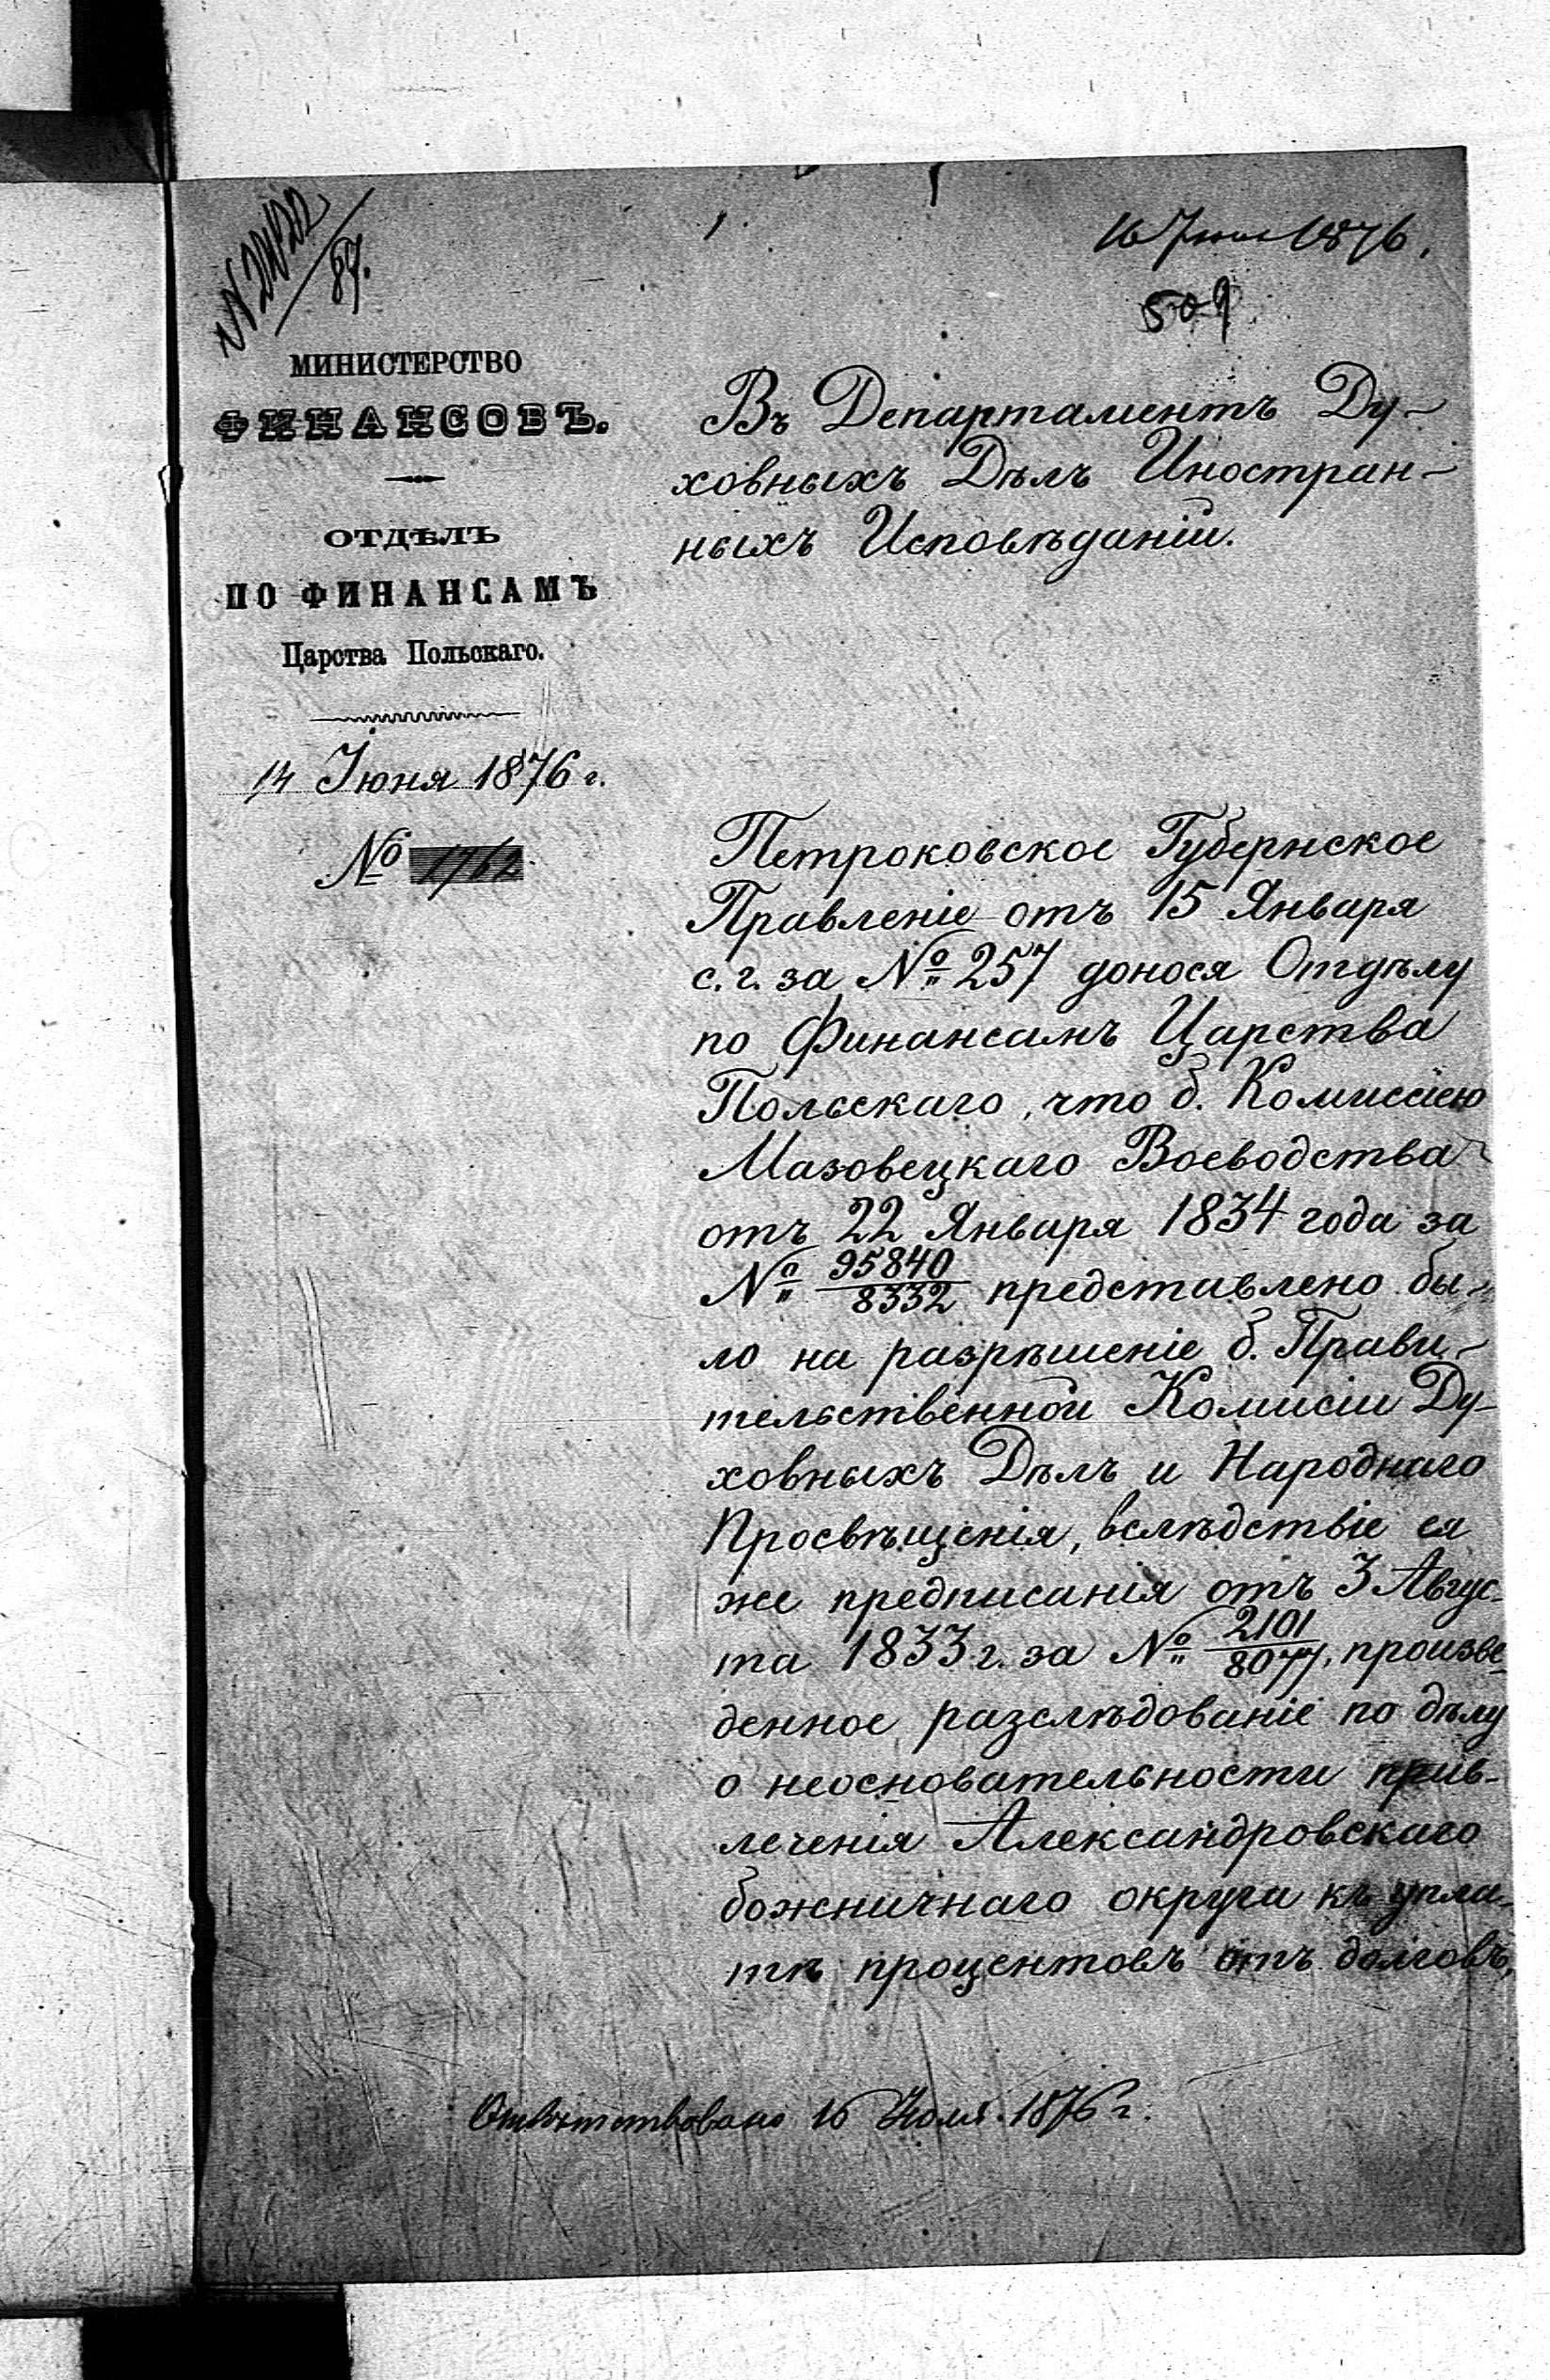 16 Іюня 1876.
509
МИНИСТЕРСТВО
ФИНАНСОВЪ.
ОТДѢЛЪ
ПО ФИНАНСАМЪ
Царства Польскаго.
14 Іюня 1876 г.
№ 1762
Въ Департаментъ Ду-
ховныхъ Дѣлъ Иностран-
ныхъ Исповѣданій.
Петроковское Губернское
Правленіе отъ 15 Января
с. г. за № 257 донося Отдѣлу
по Финансамъ Царства
Польскаго, что б. Комиссіею
Мазовецкаго Воеводства
отъ 22 Января 1834 года за
№ 95840/8332 представлено бы-
ло на разрѣшеніе б. Прави-
тельственной Комисіи Ду-
ховныхъ Дѣлъ и Народнаго
Просвѣщенія, вслѣдствіе ея
же предписанія отъ 3 Авгус-
та 1833 г. за № 2101/8077, произве-
денное разслѣдованіе по дѣлу
о неосновательности прив-
леченія Александровскаго
божничнаго округа къ упла-
тѣ процентовъ отъ долговъ,
Отвѣтствовано 16 Іюля 1876 г.